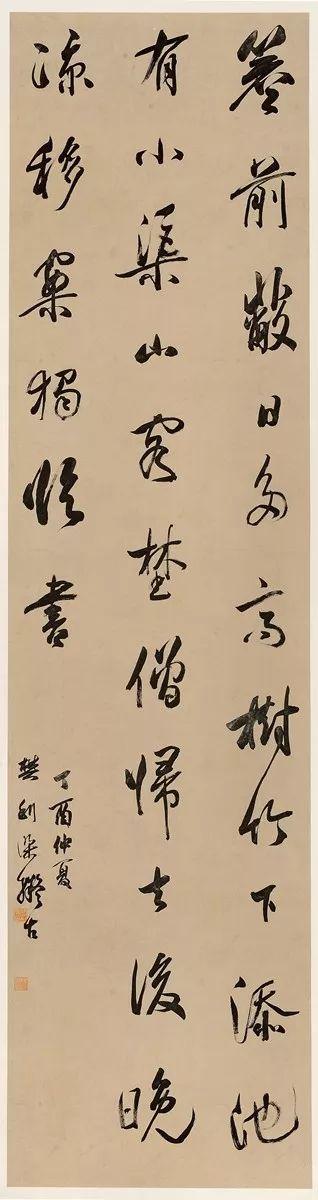 簷前蔽日多高樹竹下添池
有小渠山客埜僧歸去後晚
涼移案獨臨書
丁酉仲夏
樊利深擬古